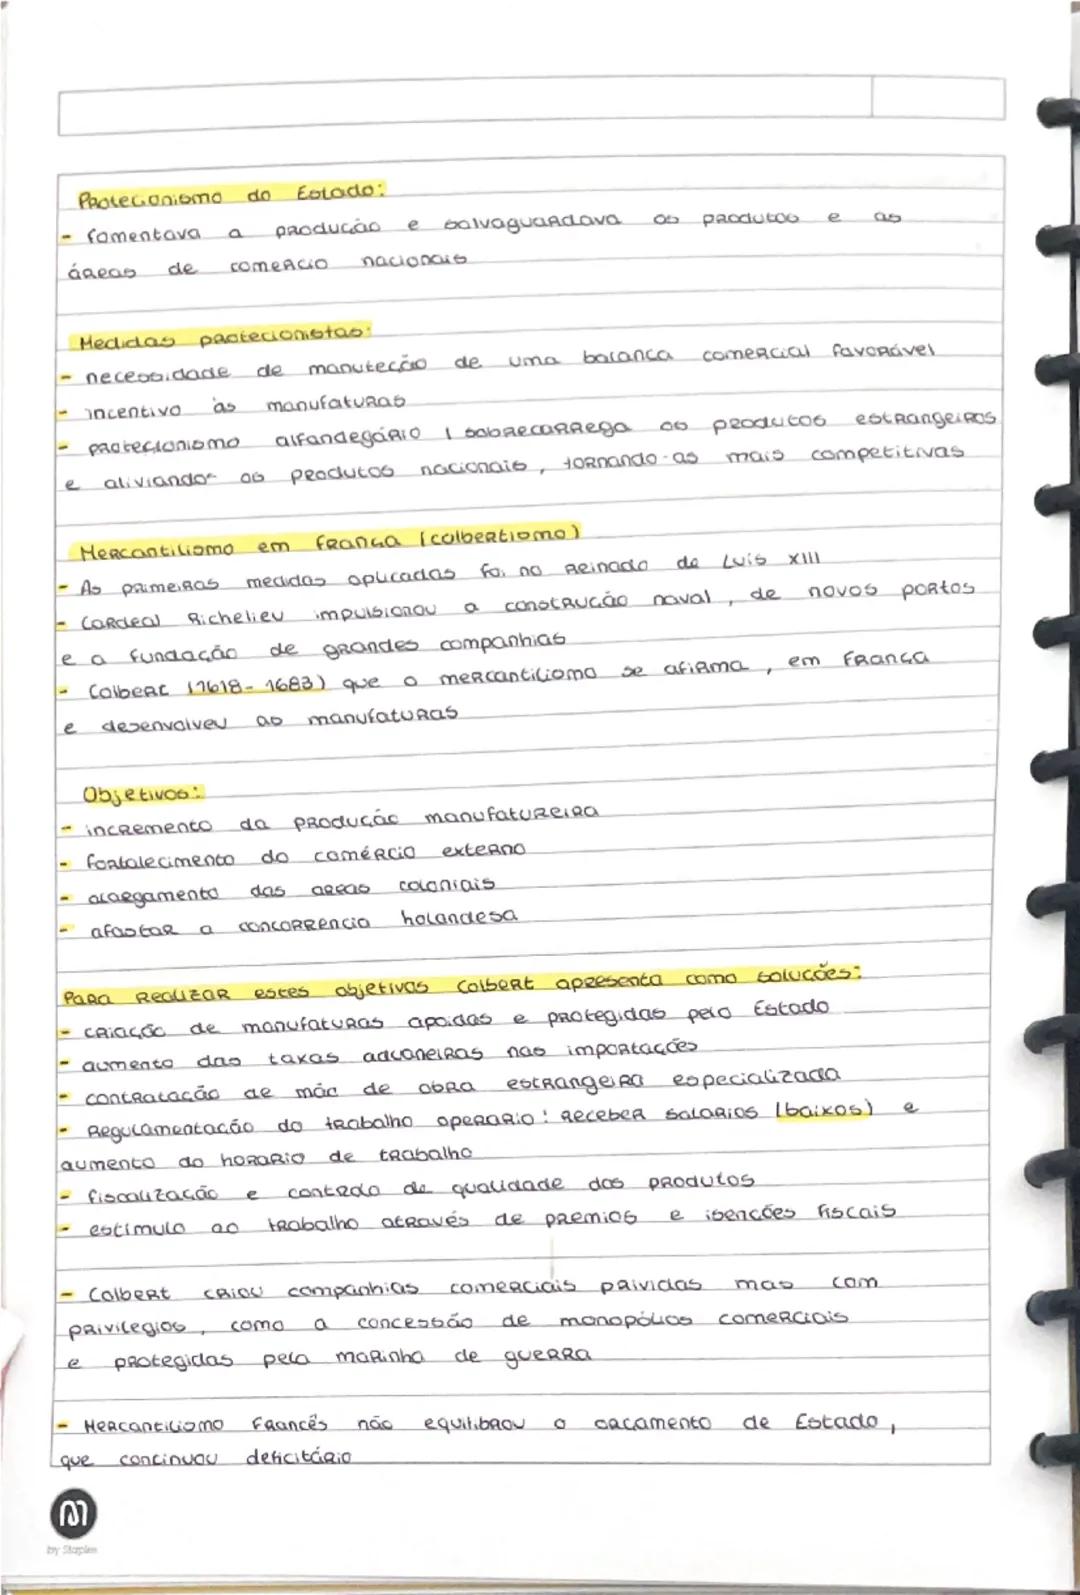 Protecionismo do Estado:
- fomentava a produção e salvaguardava os produtos e as
áreas de comercio nacionais
Medidas protecionistas:
- necessidade de manuteção de uma balança comercial favorável
- incentivo às manufaturas
- protecionismo alfandegário ( sobrecarrega os produtos estrangeiros
e aliviando os produtos nacionais, tornando-as mais competitivas
Mercantilismo em França (colbertismo)
- As primeiras medidas aplicadas foi no Reinado de Luís XIII
- Cardeal Richelieu impulsionou a construção naval, de novos portos
e a fundação de grandes companhias
- Colbert (1618-1683) que o mercantilismo se afirma, em França
e desenvolveu as manufaturas
Objetivos:
- incremento da produção manufatureira
- fortalecimento do comércio externo
- alargamento das areas coloniais
- afastar a concorrencia holandesa
Para realizar estes objetivos Colbert apresenta como soluções:
- criação de manufaturas apoidas e protegidas pelo Estado
- aumento das taxas aduaneiras nas importações
- contratação de mão de obra estrangeira especializada
- Regulamentação do trabalho operario: receber salarios (baixos) e
aumento do horario de trabalho
- fiscalização e controlo de qualidade dos produtos
- estimulo ao trabalho através de premios e isenções fiscais
- Colbert criou companhias comerciais prividas mas com
privilegios, como a concessão de monopólios comerciais
e protegidas pela marinha de guerra
- Mercantilismo Francês não equilibrou o orçamento de Estado,
que continuou deficitário
M
by Staples